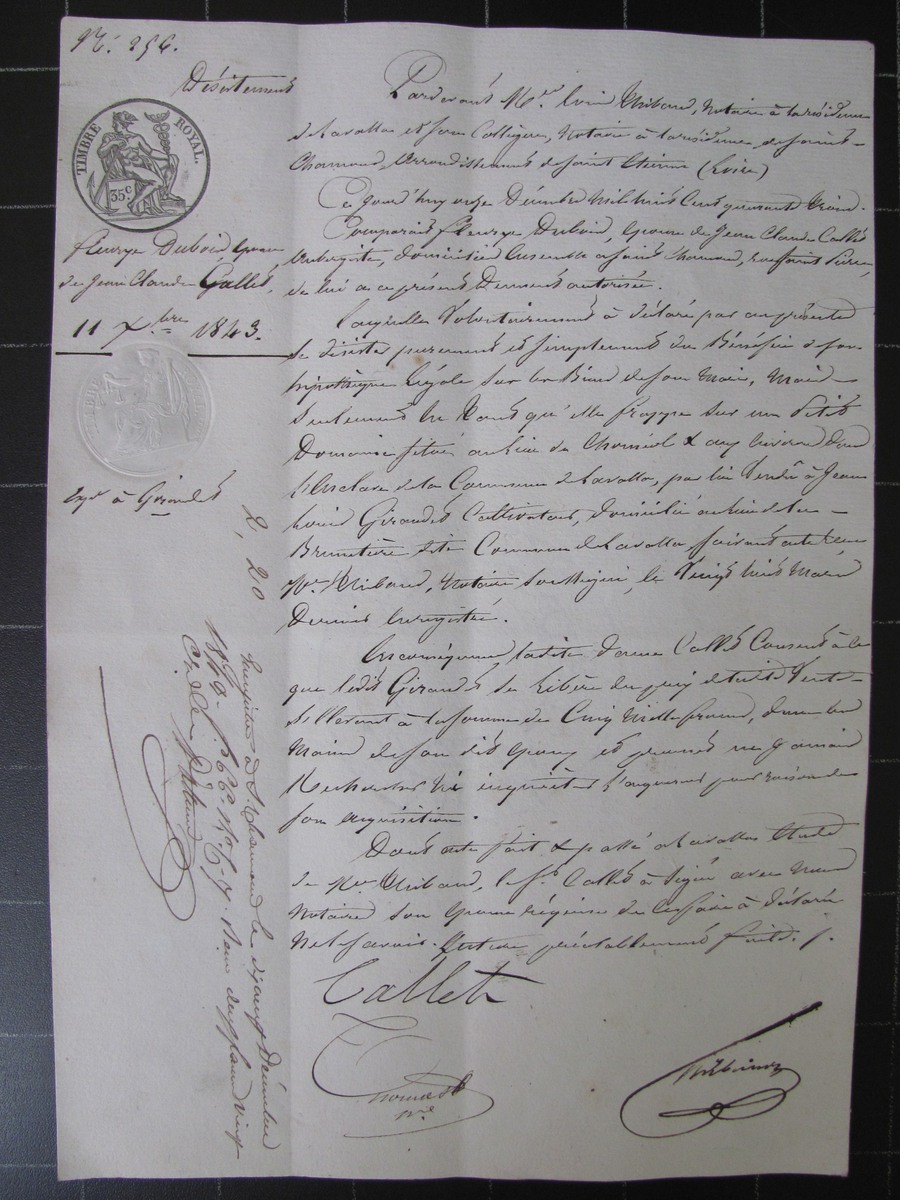 N.° 256.
Désistement
TIMBRE ROYAL.
35 c
Fleurye Dubois, épouse
de Jean Claude Gallet,
11 Xbre 1843.
à Girodet
2, 20
Pardevant Me Louis Thibaud, Notaire à la résidence
de Lavalla et son Collègue, Notaire à la résidence de Saint-
Chamond, arrondissement de Saint Etienne (Loire)
Ce jourd'huy onze Décembre mil huit cent quarante trois.
Comparait Fleurye Dubois, épouse de Jean Claude Callet
aubergiste, domiciliés ensemble à Saint Chamond,
de lui à ces présentes Dument autorisée.
Laquelle Volontairement à déclaré par ces présentes
Se désister purement et simplement du Bénéfice de son
hipothèque Légale Sur les Biens de son Mari, Mais
Seulement en tant qu'elle frappe sur un Petit
Domaine situé au lieu de & aux environs dans
l'Enclave de la Commune de Lavalla, par lui Vendu à Jean
Louis Girodet Cultivateur, domicilié au lieu de la
Brunetière dite Commune de Lavalla suivant acte reçu
Me Thibaud, Notaire Soussigné, le Vingt trois Mars
Dernier Enregistré.
En conséquence, ladite dame Callet Consent à ce
que ledit Girodet se libère du prix de ladite Vente
S'Elevant à la somme de Cinq Mille francs, dans les
Mains de son dit époux et promet ne jamais
Rechercher ni inquièter l'acquéreur pour raison de
son acquisition.
Dont acte fait & passé à Lavalla Etude
de Me Thibaud, le Sr Callet à signé avec Nous
Notaire son épouse réquise de le faire à déclaré
Ne le Savoir. Lecture préalablement faite.
Callet
Thibaud
Enregistré à St Chamond le Décembre
1843. f. 66 Reçu deux francs vingt